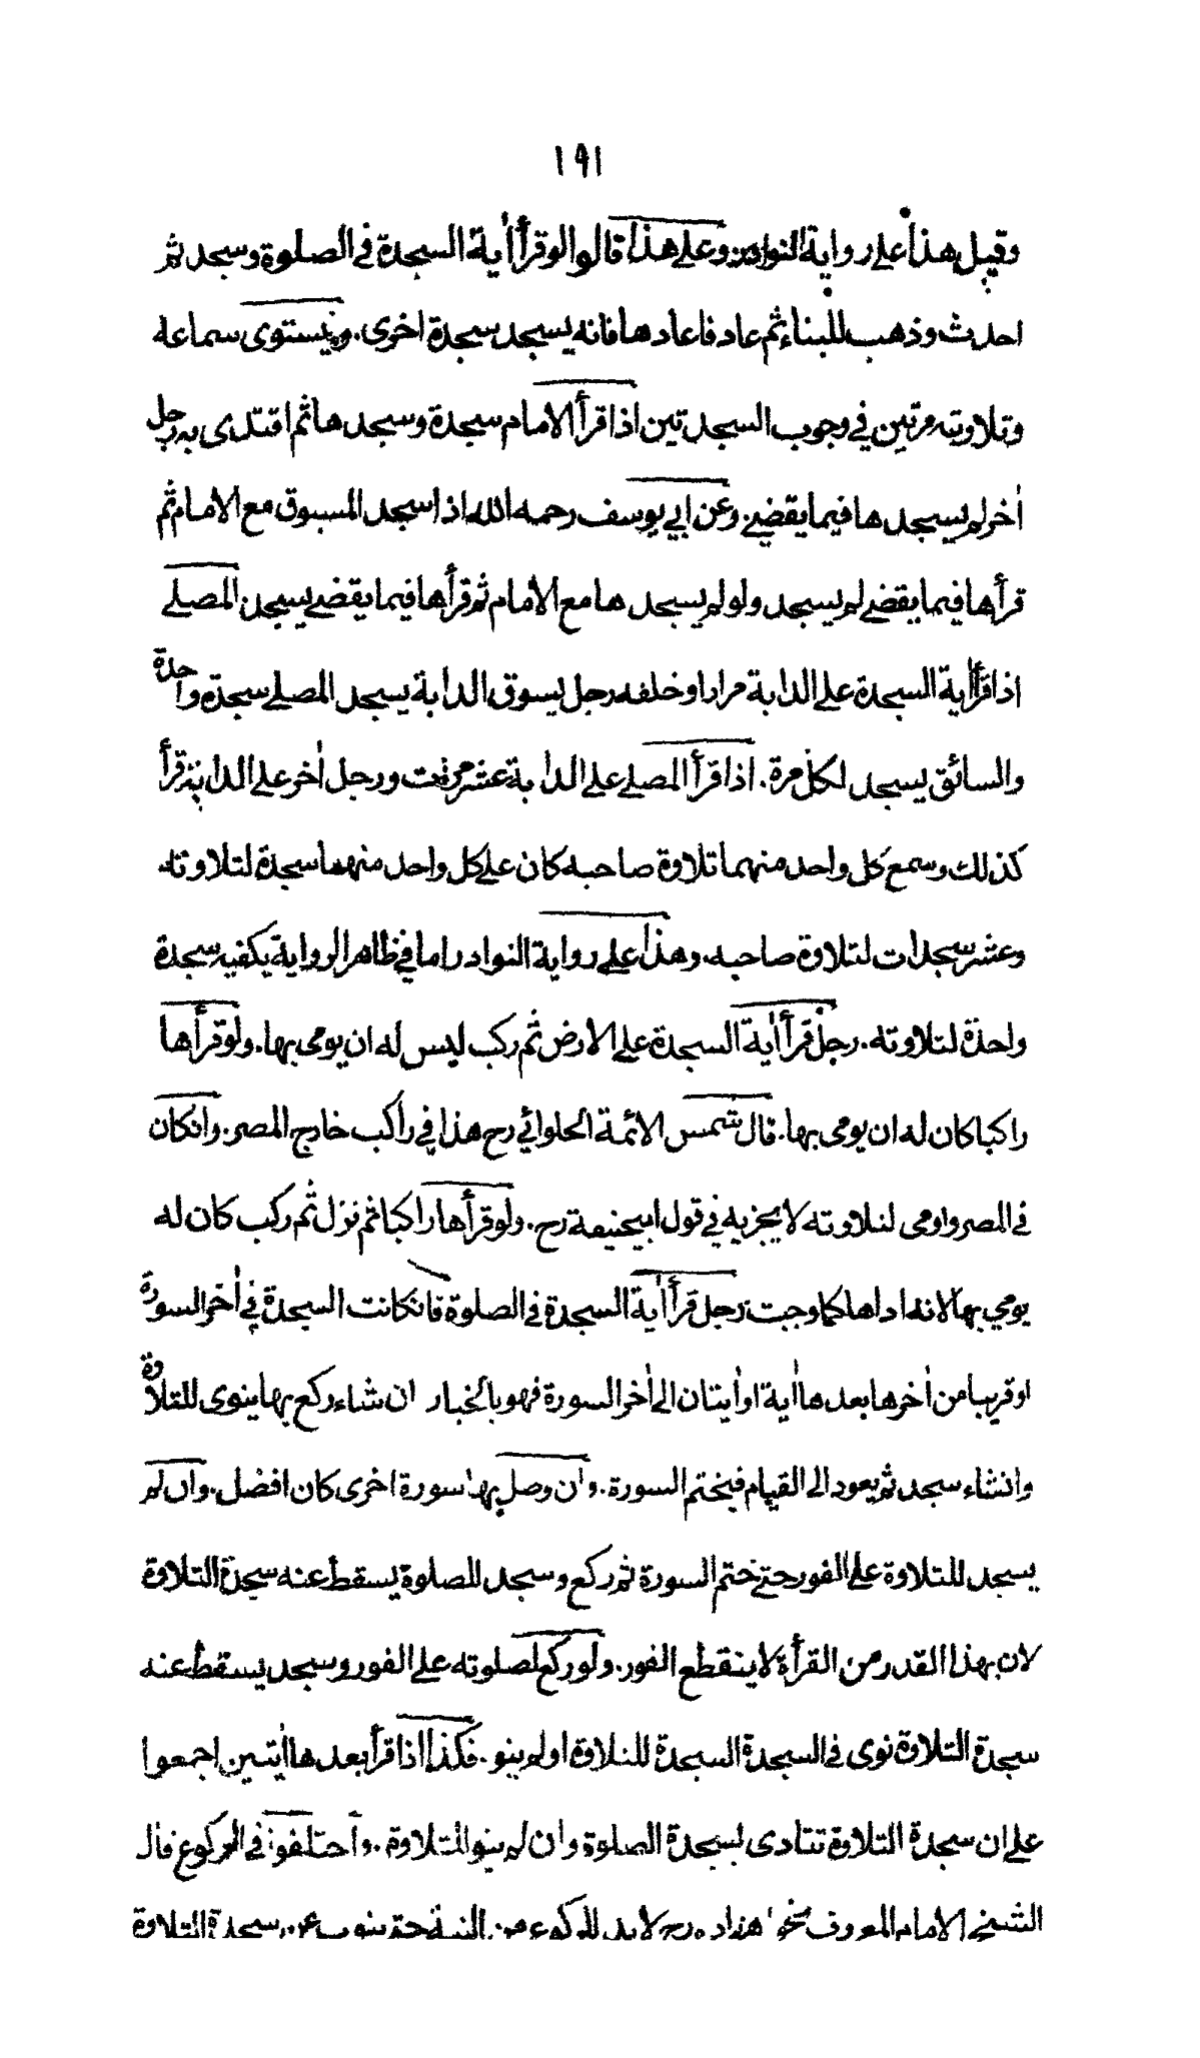 ١٩١
وقيل هذا على رواية النوادر وعلى هذا قالوا لو قرأ اٰية السجدة فى الصلوة وسجد ثم
احدث وذهب للبناء ثم عاد فاعادها فانه يسجد سجدة اخرى . ويستوى سماعه
وتلاوته مرتين في وجوب السجدتين اذا قرأ الامام سجدة وسجدها ثم اقتدى به رجل
اٰخر لم يسجدها فيما يقضي . وعن ابي يوسف رحمه الله اذا سجد المسبوق مع الامام ثم
قرأها فيما يقضي لم يسجد ولو لم يسجدها مع الامام ثم قرأها فيما يقضي يسجد . المصلے
اذا قرأ اٰية السجدة على الدابة مرارا وخلفه رجل يسوق الدابة يسجد المصلے سجدة واحدة
والسائق يسجد لكل مرة . اذا قرأ المصلے على الدابة عشر مرات ورجل اٰخر على الدابة قرأ
كذلك وسمع كل واحد منهما تلاوة صاحبه كان على كل واحد منهما سجدة لتلاوته
وعشر سجدات لتلاوة صاحبه . وهذا على رواية النوادر اما في ظاهر الرواية يكفيه سجدة
واحدة لتلاوته . رجل قرأ اٰية السجدة على الارض ثم ركب ليس له ان يومى بها . ولو قرأها
راكبا كان له ان يومى بها . قال شمس الائمة الحلوائي رح هذا في راكب خارج المصر . وانكان
فى المصر واومى لتلاوته لا يجزيه في قول ابيحنيفة رح . ولو قرأها راكبا ثم نزل ثم ركب كان له
يومي بها لانه اداها كما وجبت رجل قرأ اٰية السجدة فى الصلوة فانكانت السجدة في اٰخر السورة
او قريبا من اٰخرها بعدها اٰية او اٰيتان الى اٰخر السورة فهو بالخيار ان شاء ركع بها ينوى للتلاوة
وانشاء سجد ثم يعود الى القيام فيختم السورة . وان وصل بها سورة اخرى كان افضل . وان لم
يسجد للتلاوة على الفور حتى ختم السورة ثم ركع وسجد للصلوة يسقط عنه سجدة التلاوة
لان بهذا القدر من القرأة لا ينقطع الفور . ولو ركع لصلوته على الفور وسجد يسقط عنه
سجدة التلاوة نوى فى السجدة السجدة للتلاوة او لم ينو . فكذا اذا قرأ بعدها اٰيتين اجمعوا
على ان سجدة التلاوة تتادى بسجدة الصلوة وان لم ينو للتلاوة . واختلفوا فى الركوع قال
الشيخ الامام المعروف بخواهرزاده رح لا بد للركوع من النية حتى ينوب عن سجدة التلاوة